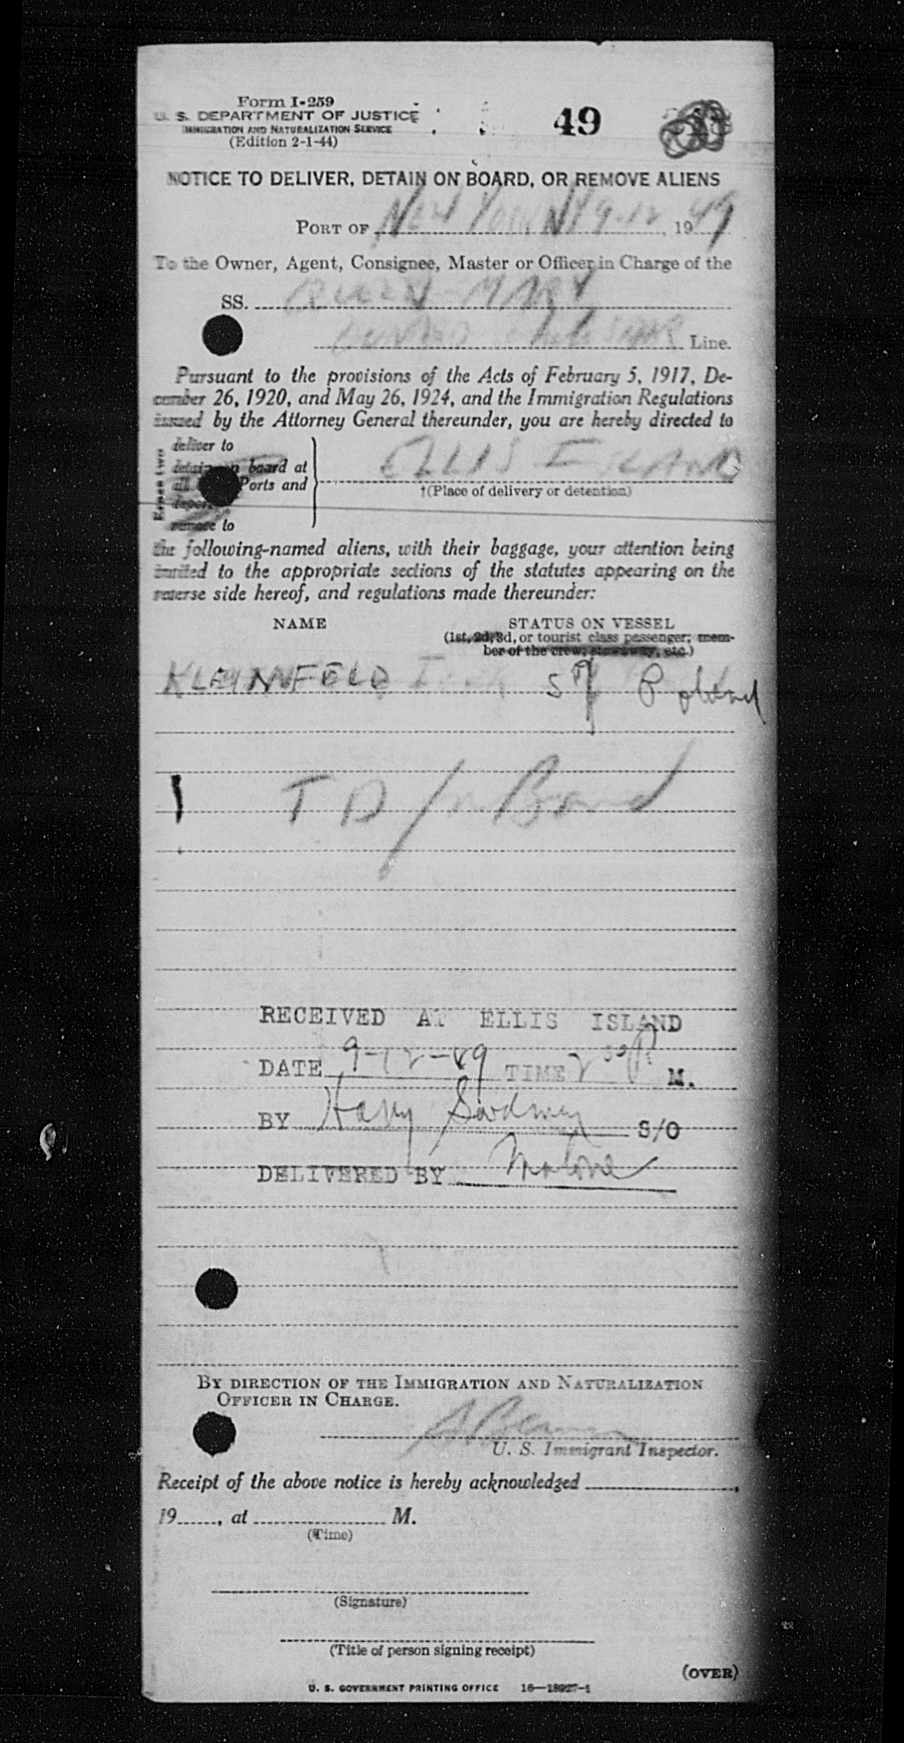 Form I-259
U. S. DEPARTMENT OF JUSTICE
IMMIGRATION AND NATURALIZATION SERVICE
(Edition 2-1-44)
49
NOTICE TO DELIVER, DETAIN ON BOARD, OR REMOVE ALIENS
PORT OF New York NY 9-12, 1949
To the Owner, Agent, Consignee, Master or Officer in Charge of the
SS. QUEEN MARY
Line.
Pursuant to the provisions of the Acts of February 5, 1917, De-
cember 26, 1920, and May 26, 1924, and the Immigration Regulations
issued by the Attorney General thereunder, you are hereby directed to
deliver to
detain on board at
all Ports and
remove to
ELLIS ISLAND
†(Place of delivery or detention)
the following-named aliens, with their baggage, your attention being
invited to the appropriate sections of the statutes appearing on the
reverse side hereof, and regulations made thereunder:
NAME STATUS ON VESSEL
(1st, 2d, 3d, or tourist class passenger; mem-
ber of the crew; stowaway, etc.)
KLEINNFELD Poland
TD / in Bond
RECEIVED AT ELLIS ISLAND
DATE 9-12-49 TIME 2 30 P M.
BY Harry S/O
DELIVERED BY Malone
BY DIRECTION OF THE IMMIGRATION AND NATURALIZATION
OFFICER IN CHARGE.
U. S. Immigrant Inspector.
Receipt of the above notice is hereby acknowledged
19, at M.
(Time)
(Signature)
(Title of person signing receipt)
(OVER)
U. S. GOVERNMENT PRINTING OFFICE 16—18927-1